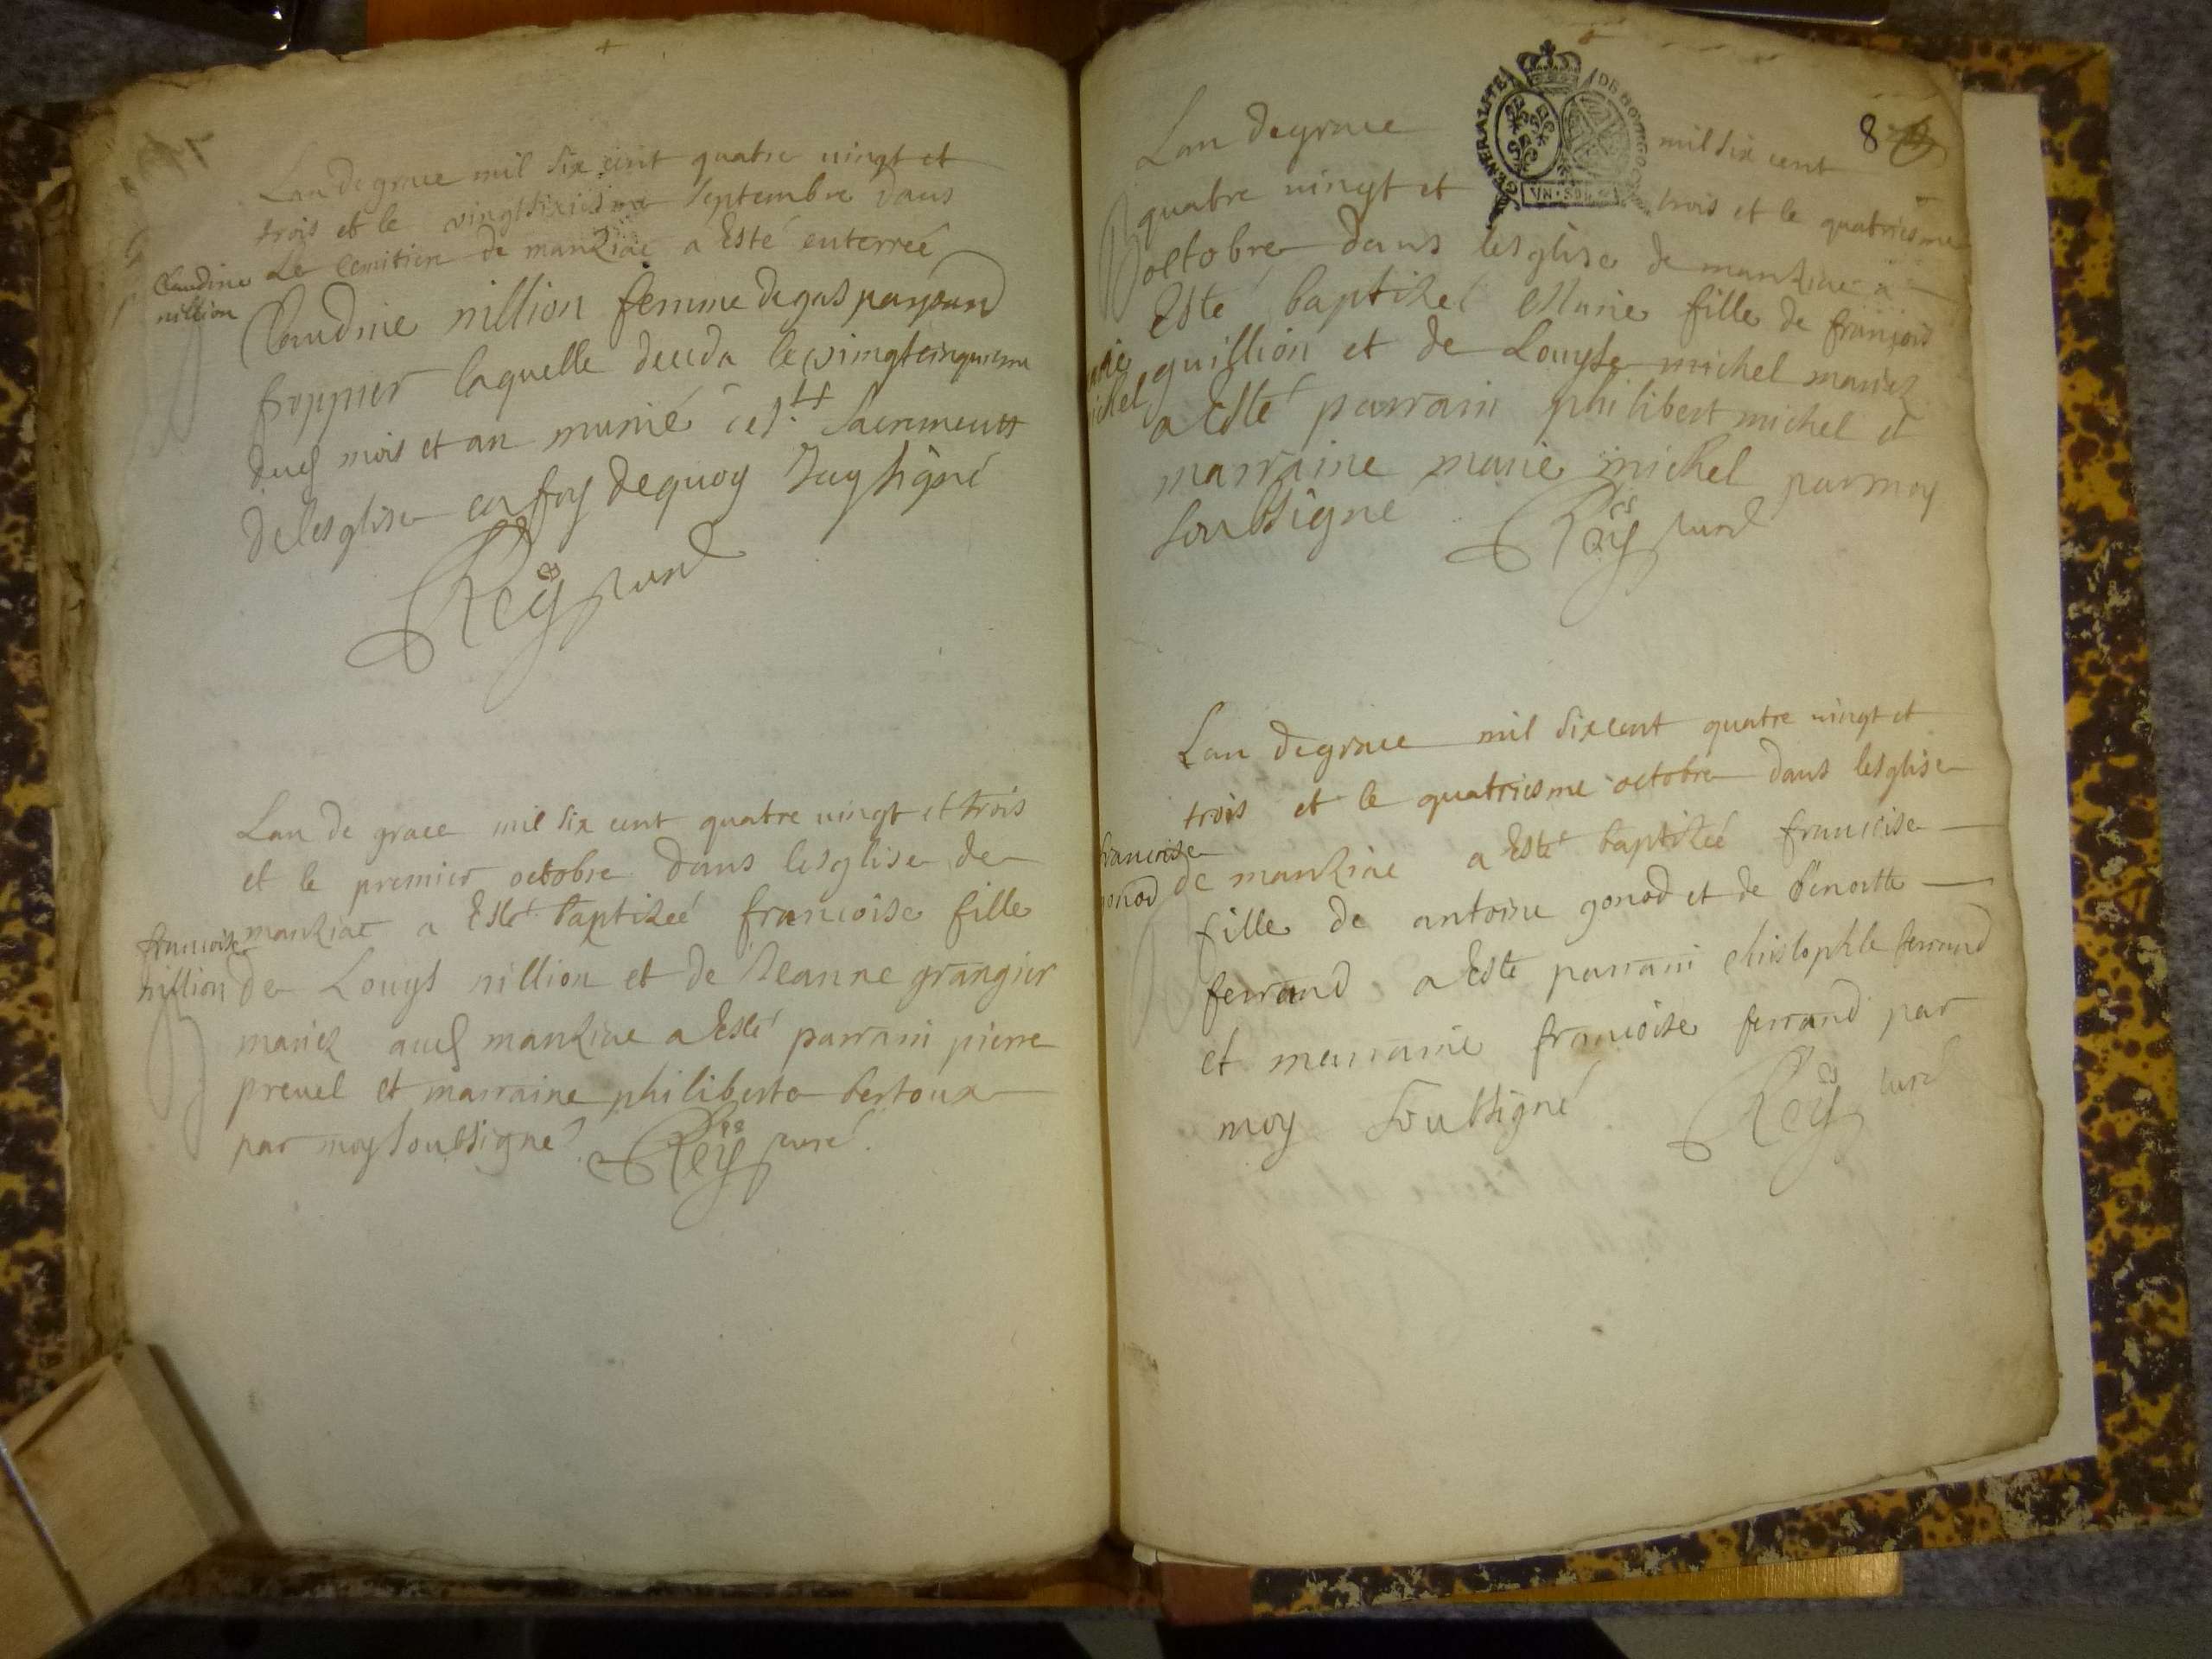 Lan de grace mil six cent quatre vingt et
trois et le vingtsixiesme septembre dans
Le cemitiere de manziac a Esté enterreé
Claudine
nillion
Claudine nillion femme de gaspar
froppier laquelle deceda le vingtcinquiesme
dud mois et an munie des Sacrements
de lesglise en foy dequoy Jay signé
Rey curé
Lan de grace mil six cent quatre vingt et trois
et le premier octobre dans lesglise de
francoise
nillion
manziac a Esté baptizeé francoise fille
de Louys nillion et de Jeanne grangier
mariez aud manziac a Esté parrain pierre
prevel et marraine philiberte bertoux
par moy soubsigné Rey curé.
8
GENERALITE DE BOVRGO
VN·SOL
Lan de grace mil six cent
quatre vingt et trois et le quatriesme
octobre dans lesglise de manziac a
Esté baptizeé Marie fille de françois
guillion et de Louyse michel mariez
a Esté parrain philibert michel et
marraine marie michel par moy
soubsigne Rey curé
Lan de grace mil six cent quatre vingt et
trois et le quatriesme octobre dans lesglise
francoise
gonod
de manziac a Esté baptizeé francoise
fille de antoine gonod et de benoitte
ferrand a Esté parrain christophle ferrand
et marraine francoise ferrand par
moy soubsigné Rey curé